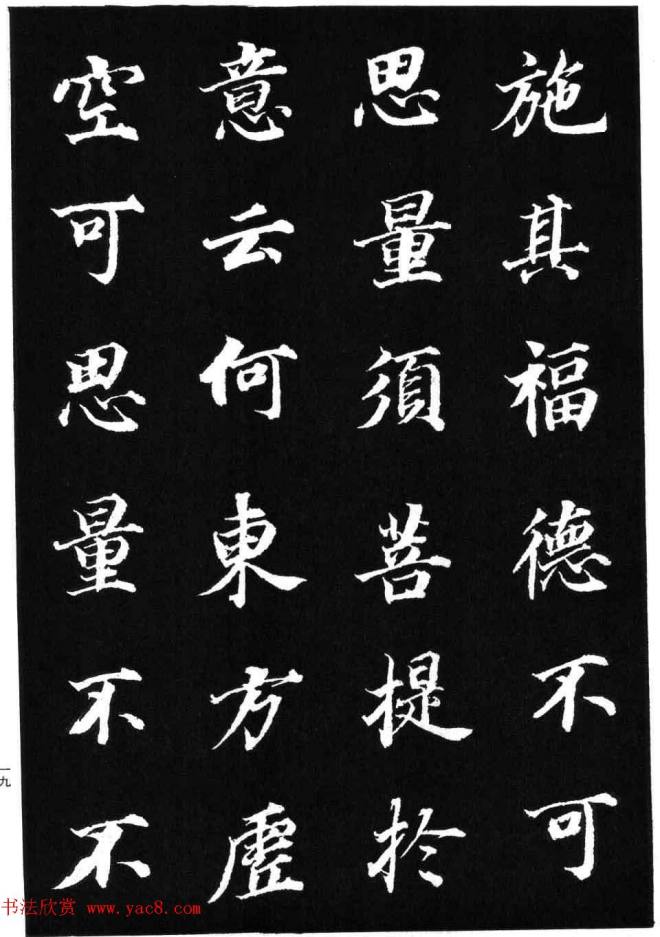 施其福德不可
思量須菩提於
意云何東方虛
空可思量不不
一九
书法欣赏 www.yac8.com